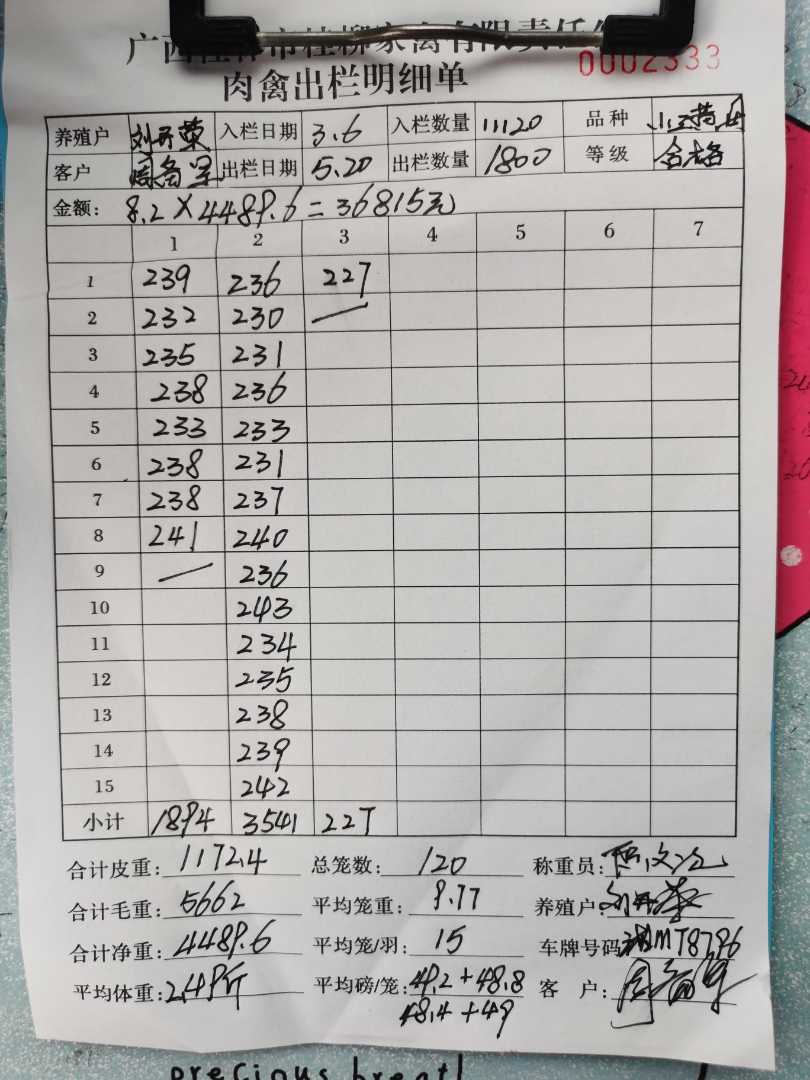 广西桂林市桂柳家禽有限责任公
0002333
肉禽出栏明细单
养殖户 刘开荣 入栏日期 3.6 入栏数量 11120 品种
客户 出栏日期 5.20 出栏数量 1800 等级 合格
金额: 8.2×4489.6=36815元
1 2 3 4 5 6 7
1 239 236 227
2 232 230 —
3 235 231
4 238 236
5 233 233
6 238 231
7 238 237
8 241 240
9 — 236
10 243
11 234
12 235
13 238
14 239
15 242
小计 1894 3541 227
合计皮重: 1172.4 总笼数: 120 称重员:
合计毛重: 5662 平均笼重: 9.77 养殖户: 刘开荣
合计净重: 4489.6 平均笼/羽: 15 车牌号码 MT8796
平均体重: 2.49斤 平均磅/笼: 49.2+48.8 客 户:
48.4+49
precious